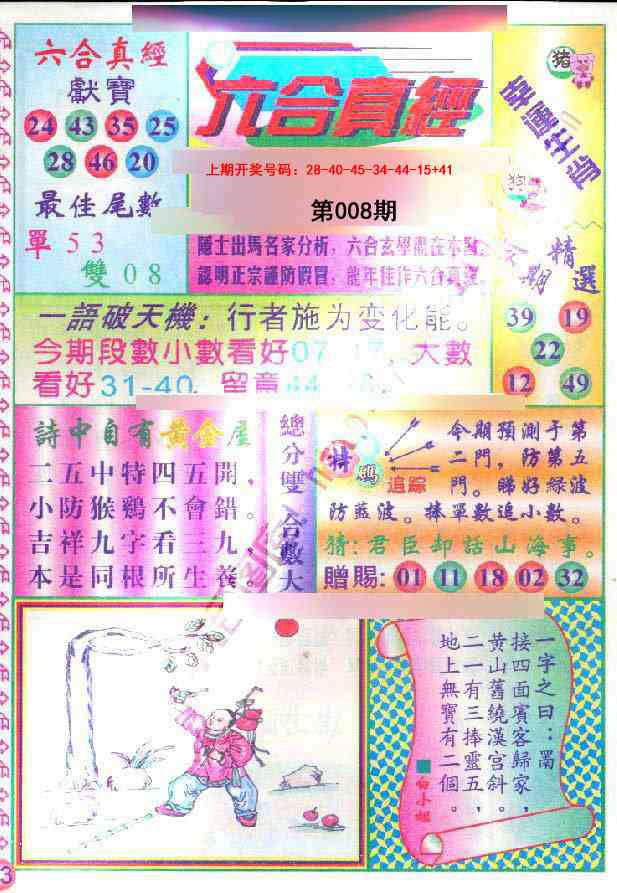 六合真經
獻寶
24 43 35 25
28 46 20
最佳尾數
單 5 3
雙 0 8
六合真經
上期开奖号码：28-40-45-34-44-15+41
第008期
隱士出馬名家分析，六合玄學盡在本
認明正宗謹防假冒，能年佳作六合真經
猪
狗
精選
39 19
22
12 49
一語破天機：行者施为变化能。
今期段數小數看好07-17，大數
看好31-40，留意44
詩中自有黃金屋
二五中特四五開，
小防猴鷄不會錯。
吉祥九字看三九，
本是同根所生養。
總分雙 合數大
特碼
追踪
今期預測于第
二門，防第五
門。睇好綠波
防藍波。捧單數追小數。
猜：君臣却話山海事。
贈賜：01 11 18 02 32
一字之曰：蜀
接四面賓客歸家，
黃山舊繞漢宮斜，
二一有三捧靈五，
地上無寶有二個。
白小姐
3